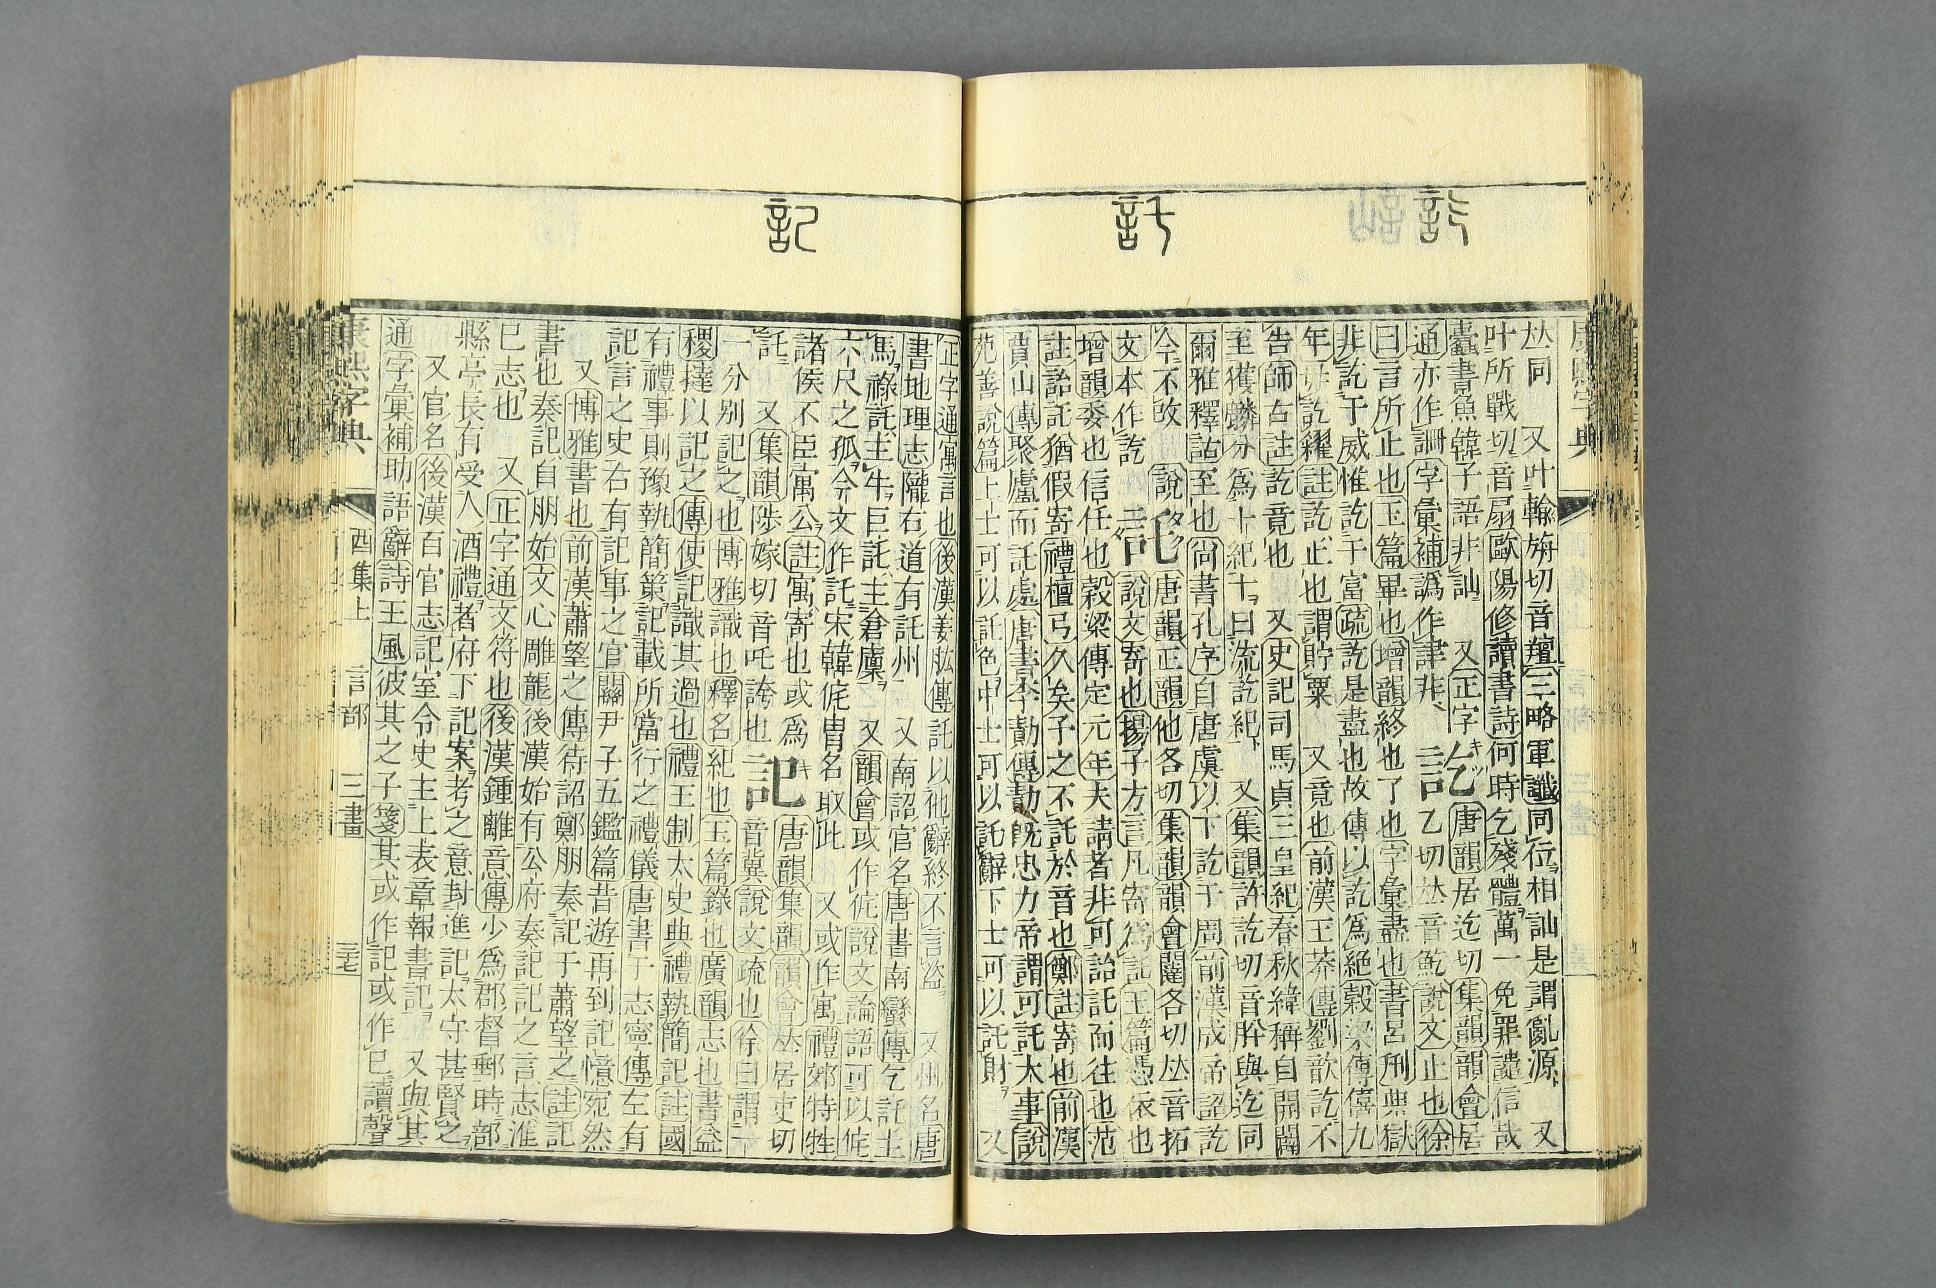 訖
託
記
康熙字典
𠀤同 又叶翰旃切音羶三略軍讖同位相訕是謂亂源 又
叶所戰切音扇歐陽修讀書詩何時乞殘體萬一免罪譴信哉
蠹書魚韓子語非訕 又正字
通亦作 字彙補譌作 非
訖 唐韻居迄切集韻韻會居
乙切𠀤音 說文止也徐
曰言所止也玉篇畢也增韻終也了也字彙盡也書呂𠛬典獄
非訖于威惟訖于富疏訖是盡也故傳以訖爲絕穀梁傳僖九
年毋訖糴註訖止也謂貯粟 又竟也前漢王莽傳劉歆訖不
告師古註訖竟也 又史記司馬貞三皇紀春秋緯稱自開闢
至獲麟分爲十紀十曰流訖紀 又集韻許訖切音肸與迄同
爾雅釋詁至也尙書孔序自唐虞以下訖于周前漢成帝詔訖
今不改 說
文本作訖
託 唐韻正韻他各切集韻韻會闥各切𠀤音拓
說文寄也揚子方言凡寄爲託玉篇憑依也
增韻委也信任也穀梁傳定元年夫請者非可詒託而往也范
註詒託猶假寄禮檀弓久矣子之不託於音也鄭註寄也前漢
賈山傳聚廬而託處唐書李勣傳勣旣忠力帝謂可託大事說
苑善說篇上士可以託色中士可以託辭下士可以託財 又
正字通寓言也後漢姜肱傳託以他辭終不言盜 又州名唐
書地理志隴右道有託州 又南詔官名唐書南蠻傳乞託主
馬祿託主牛巨託主倉廩 又韻會或作侂說文論語可以侂
六尺之孤今文作託宋韓侂冑名取此 又或作寓禮郊特牲
諸侯不臣寓公註寓寄也或爲
託 又集韻陟嫁切音吒誇也
記 唐韻集韻韻會𠀤居吏切
音冀說文疏也徐曰謂一
一分別記之也博雅識也釋名紀也玉篇錄也廣韻志也書益
稷撻以記之傳使記識其過也禮王制太史典禮執簡記註國
有禮事則豫執簡策記載所當行之禮儀唐書于志寧傳左有
記言之史右有記事之官關尹子五鑑篇昔遊再到記憶宛然
又博雅書也前漢蕭望之傳待詔鄭朋奏記于蕭望之註記
書也奏記自朋始文心雕龍後漢始有公府奏記記之言志進
己志也 又正字通文符也後漢鍾離意傳少爲郡督郵時部
縣亭長有受人酒禮者府下記案考之意封進記太守甚賢之
又官名後漢百官志記室令史主上表章報書記 又與其
通字彙補助語辭詩王風彼其之子箋其或作記或作己讀聲
康熙字典 酉集上 言部 三畫